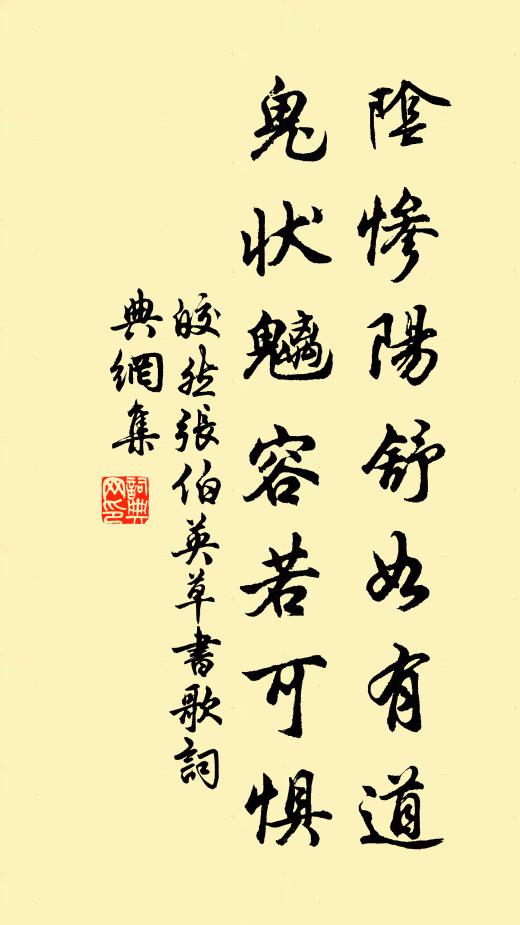 陰慘陽舒如有道
鬼狀魑容若可懼
皎然張伯英草書歌詞
典網集
詞典網印